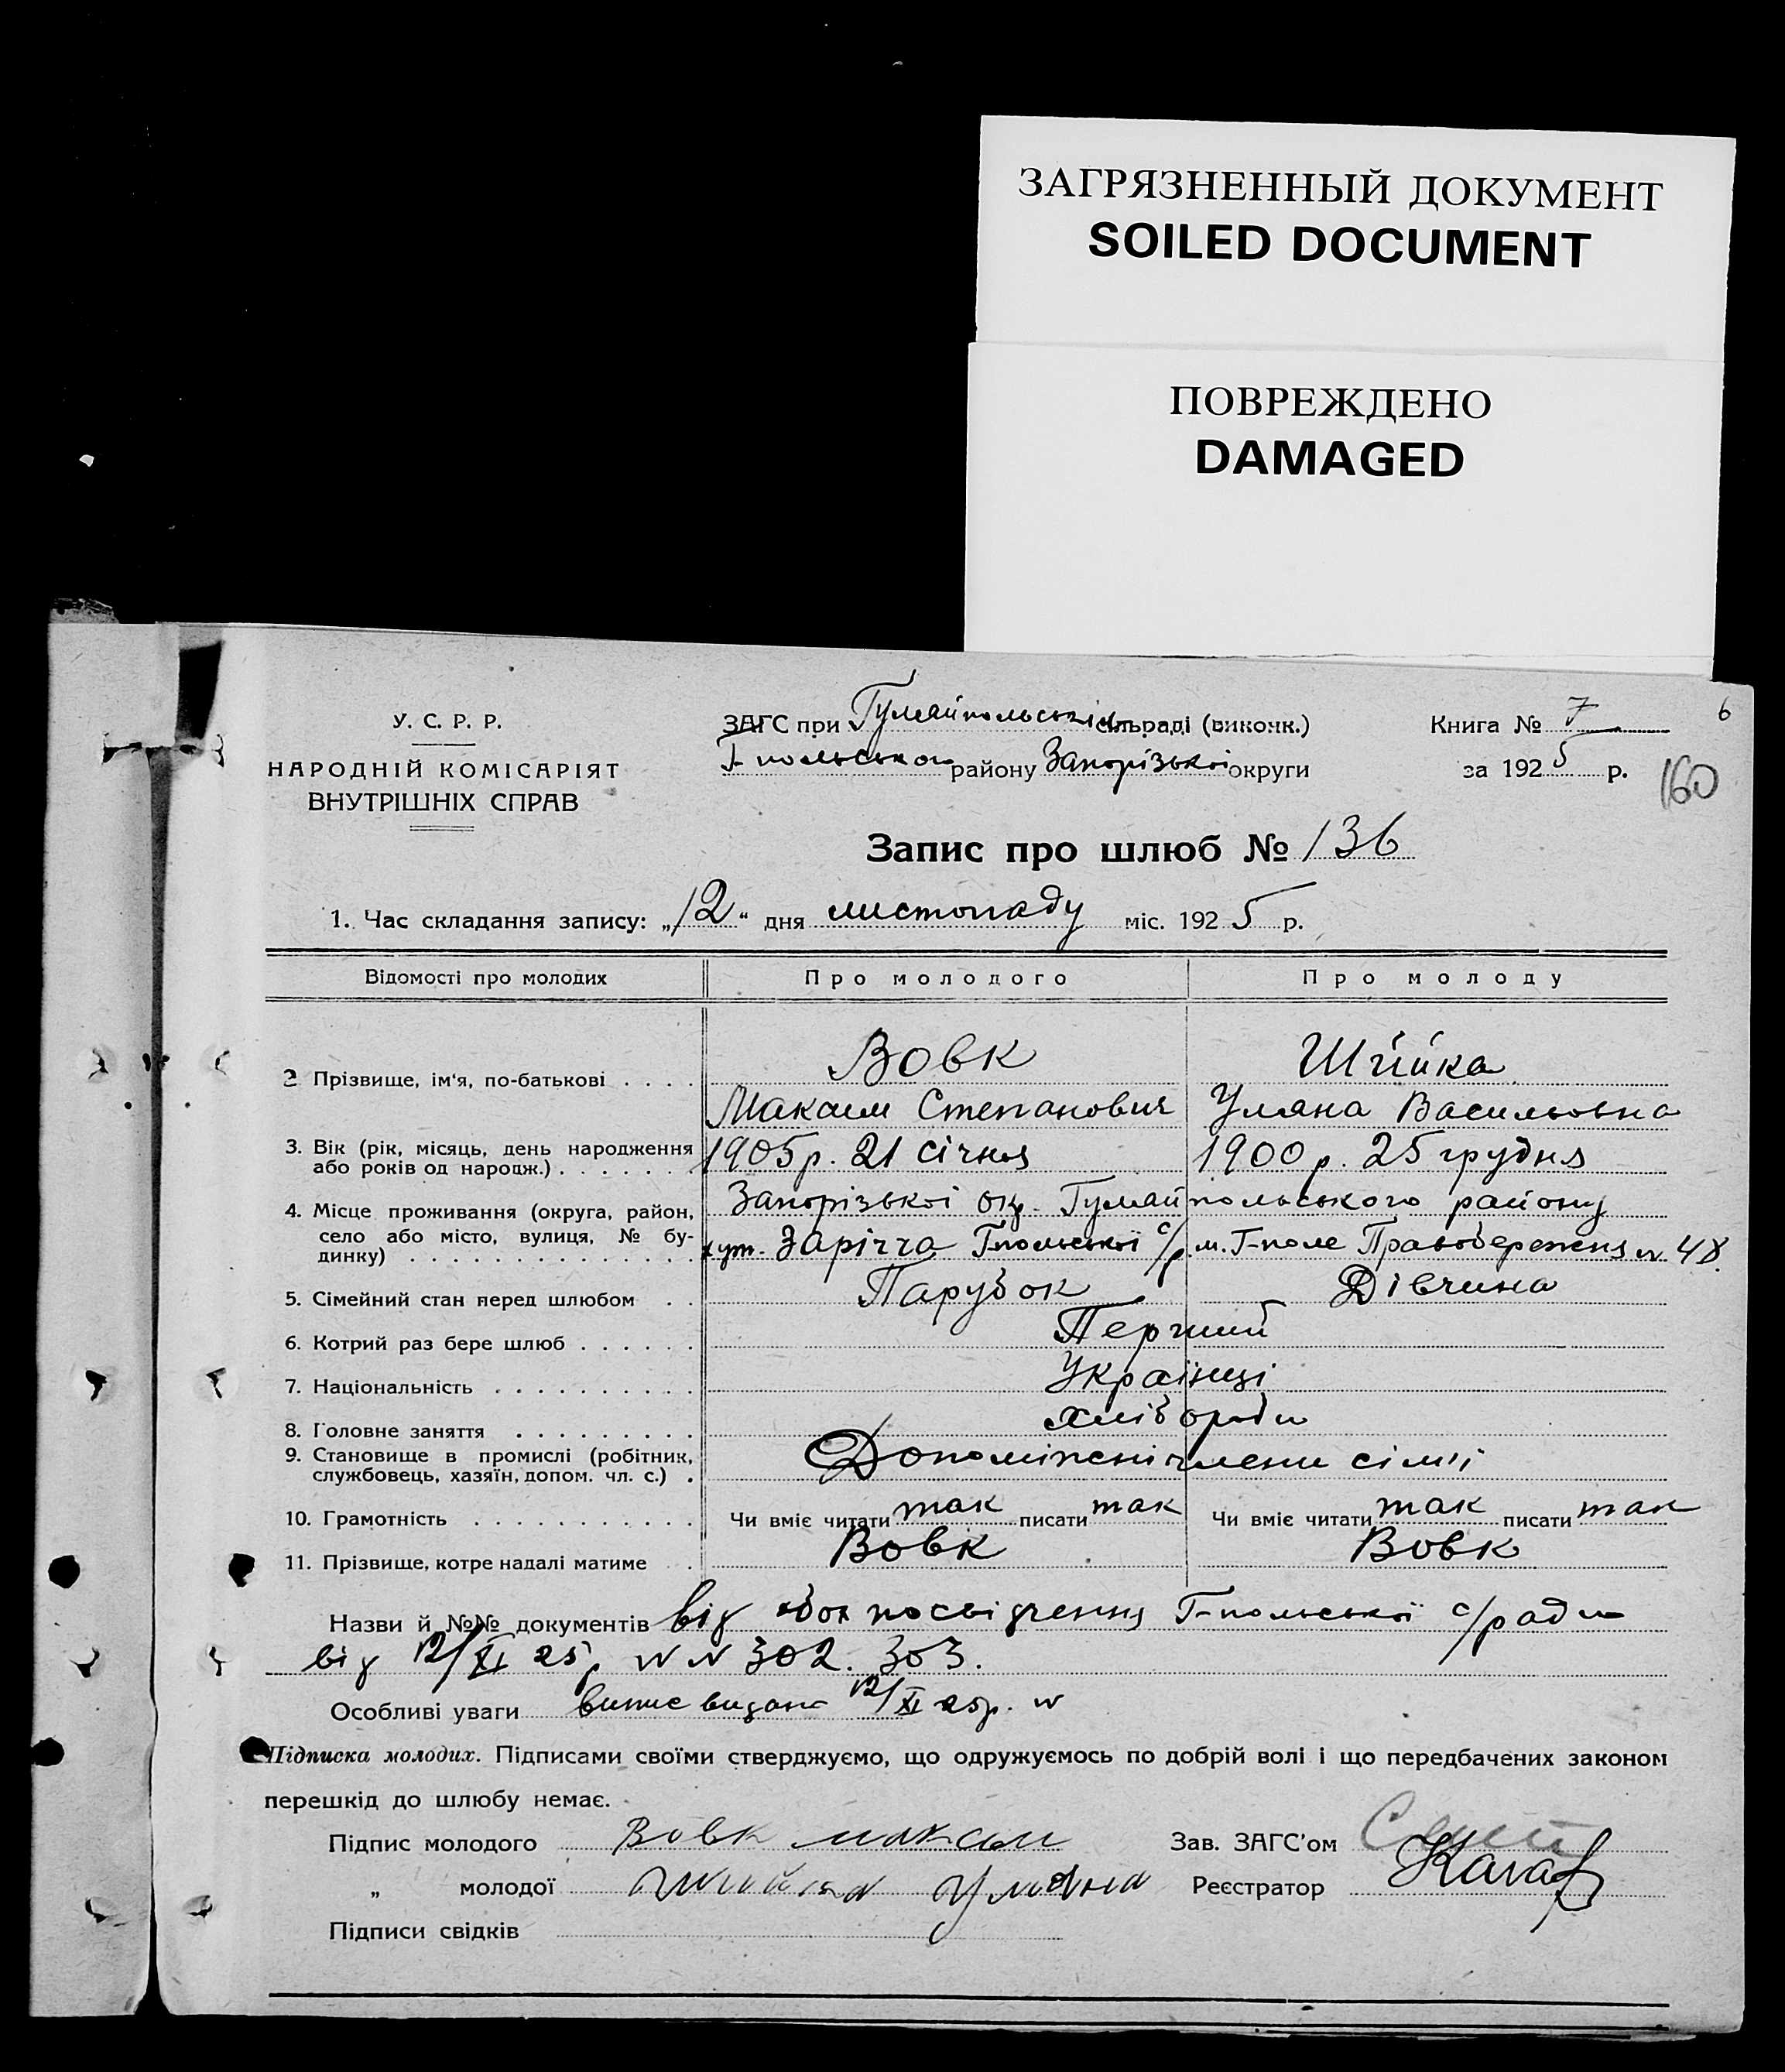 ЗАГРЯЗНЕННЫЙ ДОКУМЕНТ
SOILED DOCUMENT
ПОВРЕЖДЕНО
DAMAGED
6
У. С. Р. Р.
НАРОДНІЙ КОМІСАРІЯТ
ВНУТРІШНІХ СПРАВ
ЗАГС при Гуляйпольській сільраді (виконк.)
Г-польського району Запорізької округи
Книга № 7
за 1925 р.
160
Запис про шлюб № 136
1. Час складання запису: „12“ дня листопаду міс. 1925 р.
Відомості про молодих Про молодого Про молоду
2 Прізвище, ім'я, по-батькові . . . . Вовк Шийка
Максим Степанович Уляна Васильовна
3. Вік (рік, місяць, день народження
або років од народж.) . . . . . . . 1905р. 21 січня 1900 р. 25 грудня
4. Місце проживання (округа, район, Запорізької окр. Гуляйпольського району
село або місто, вулиця, № бу-
динку) . . . . . . . . . . . . . . хут. Зарічча Г-польської с/р. м. Г-поле Правобережня N 48
5. Сімейний стан перед шлюбом . . Парубок Дівчина
6. Котрий раз бере шлюб . . . . . . Перший
7. Національність . . . . . . . . . . Українці
8. Головне заняття . . . . . . . . . Хлібороби
9. Становище в промислі (робітник,
службовець, хазяїн, допом. чл. с.) . Допоміжні члени сім'ї
10. Грамотність . . . . . . . . . . . Чи вміє читати так писати так Чи вміє читати так писати так
11. Прізвище, котре надалі матиме . Вовк Вовк
Назви й №№ документів від обох посвідчення Г-польської с/ради
від 12/XI 25р N N 302. 303.
Особливі уваги випис видано 12/XI 25р. N
Підписка молодих. Підписами своїми стверджуємо, що одружуємось по добрій волі і що передбачених законом
перешкід до шлюбу немає.
Підпис молодого Вовк Максим Зав. ЗАГС'ом
„ молодої Шийка Уляна Реєстратор
Підписи свідків